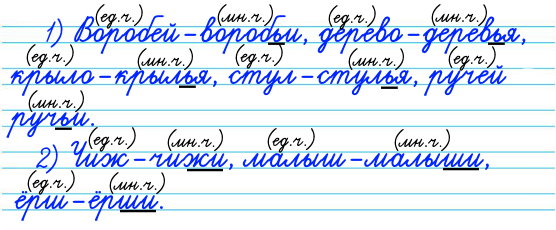 (ед.ч.) (мн.ч.) (ед.ч.) (мн.ч.)
1) Воробей – воробьи, дерево – деревья,
(ед.ч.) (мн.ч.) (ед.ч.) (мн.ч.) (ед.ч.)
крыло – крылья, стул – стулья, ручей
(мн.ч.)
ручьи.
(ед.ч.) (мн.ч.) (ед.ч.) (мн.ч.)
2) Чиж – чижи, малыш – малыши,
(ед.ч.) (мн.ч.)
ёрш – ёрши.